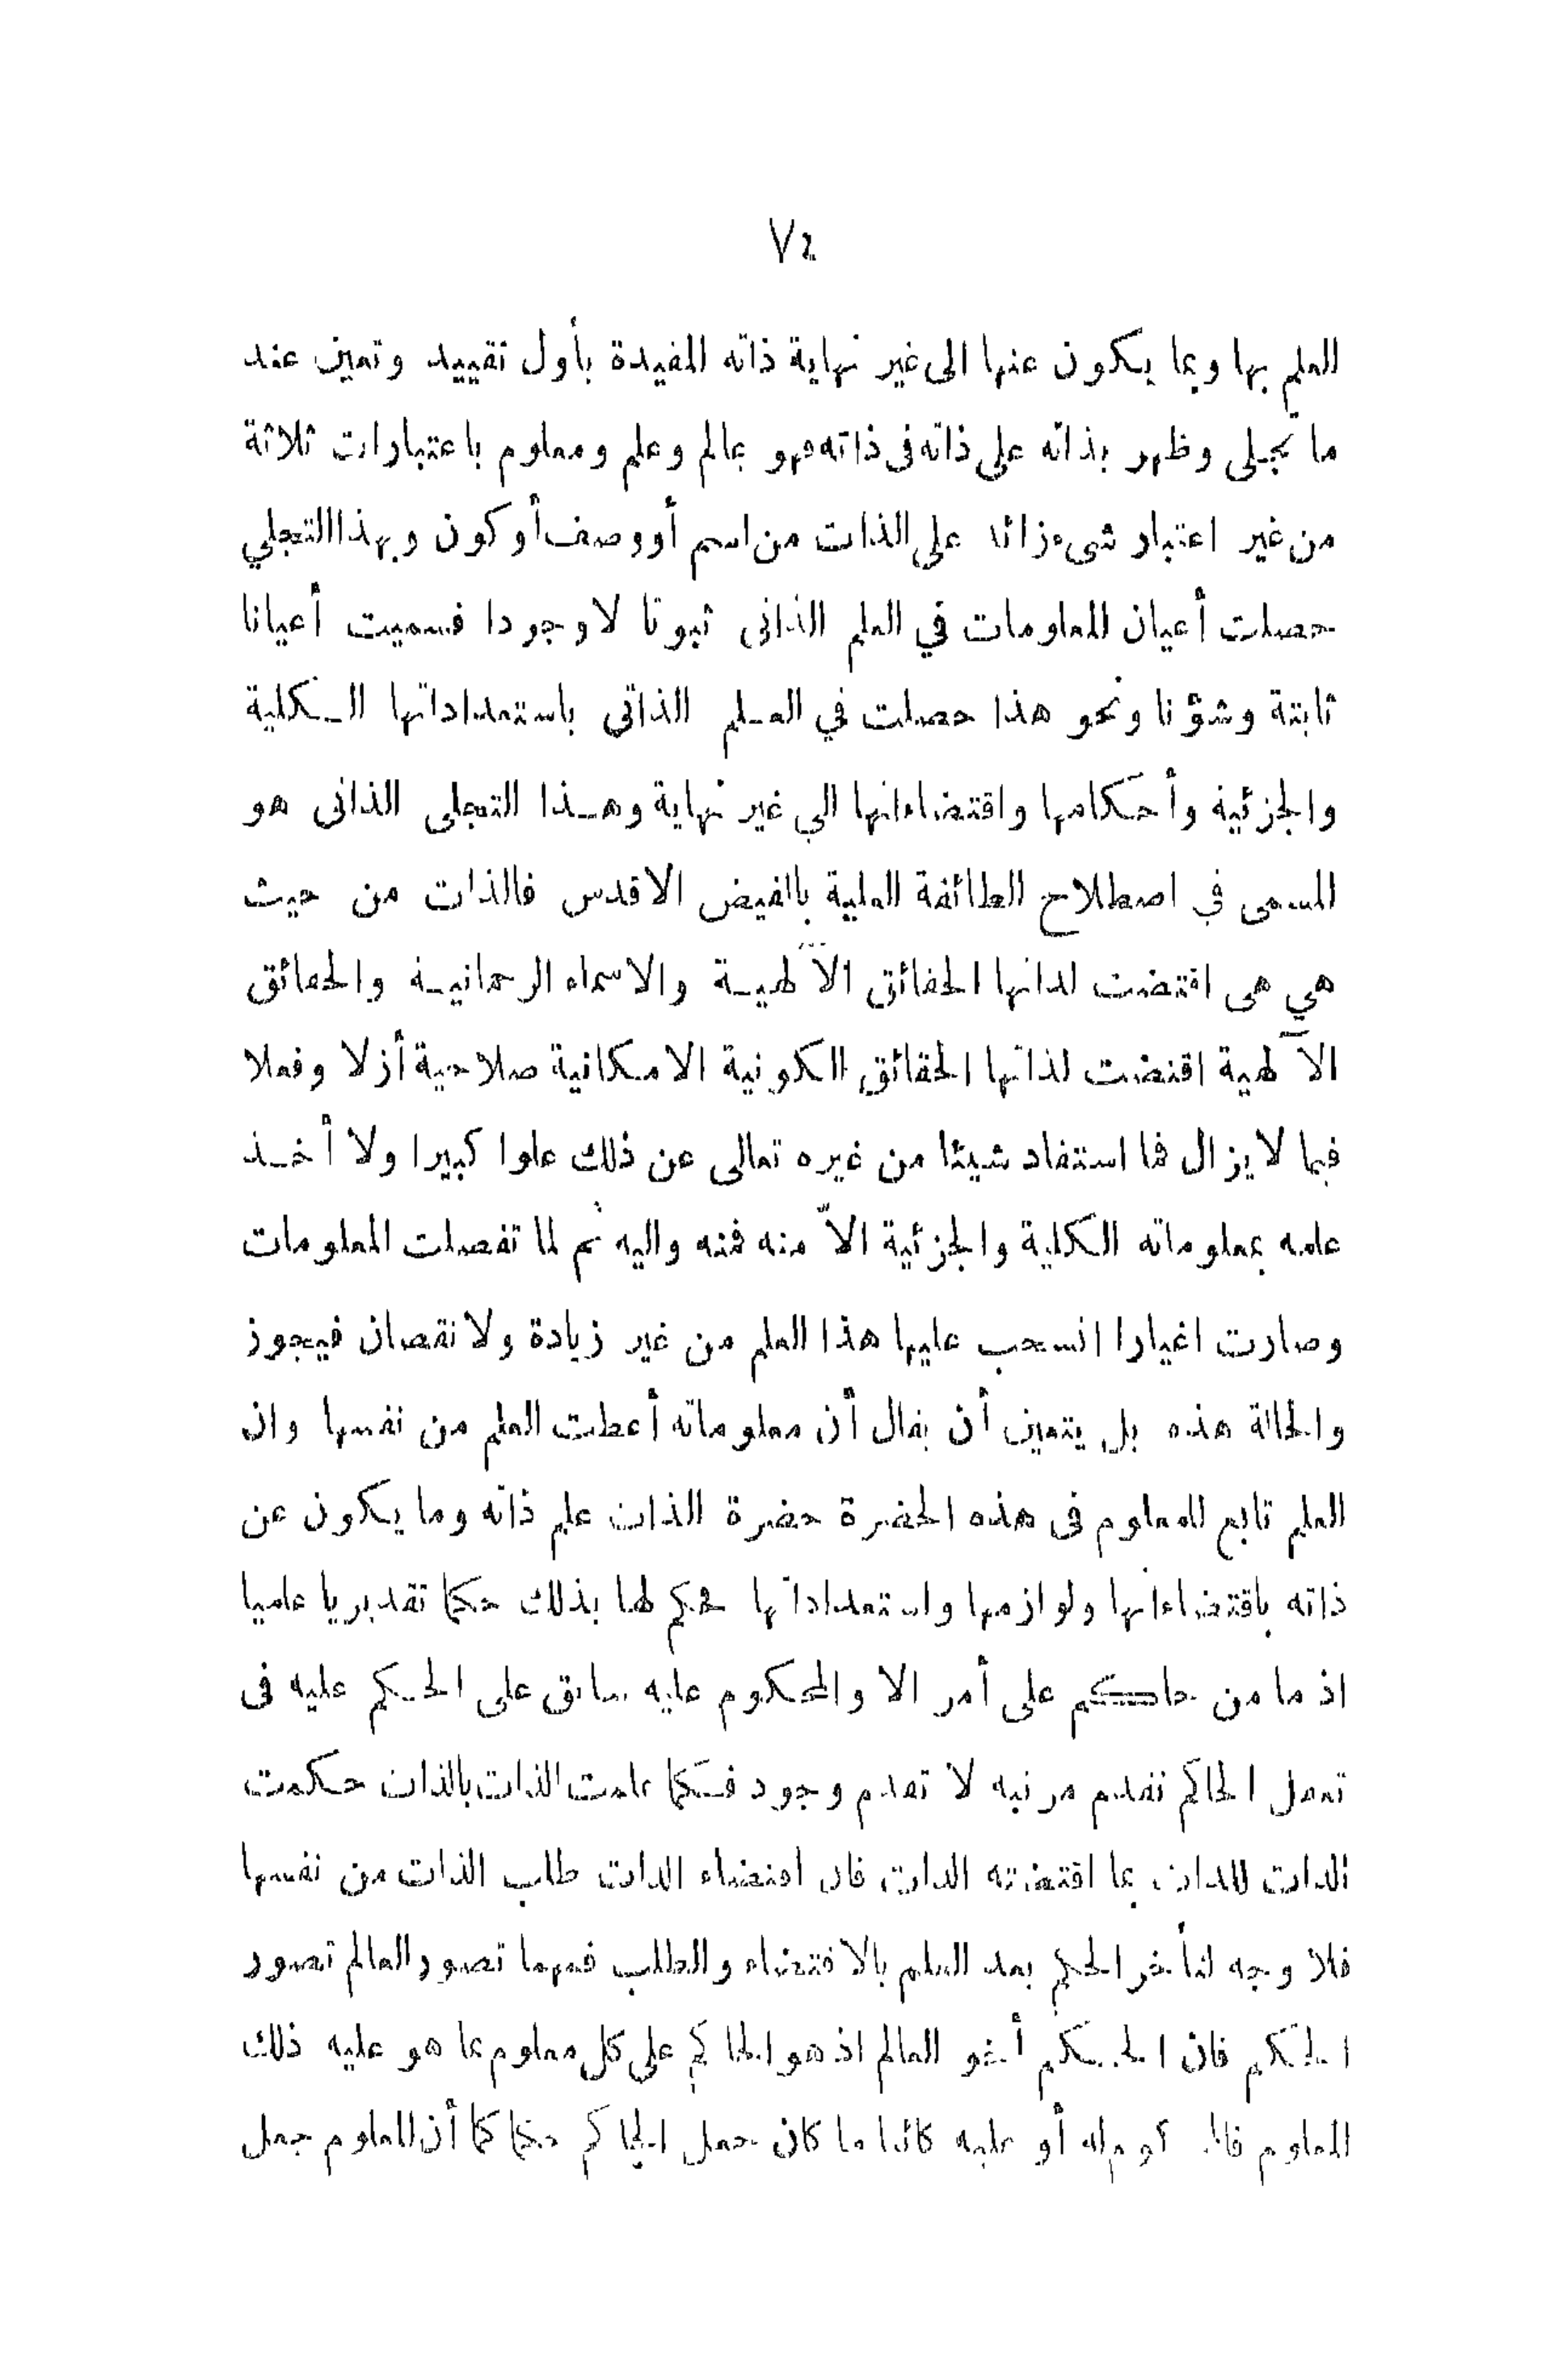 ٧٤
العلم بها وبما يكون عنها الى غير نهاية ذاته المفيدة بأول تقييد وتعين عند
ما تجلى وظهر بذاته على ذاته فى ذاته فهو عالم وعلم ومعلوم باعتبارات ثلاثة
من غير اعتبار شىء زائد على الذات من اسم أو وصف أو كون وبهذا التجلي
حصلت أعيان المعلومات في العلم الذاتى ثبوتا لا وجودا فسميت أعيانا
ثابتة وشؤنا ونحو هذا حصلت في العلم الذاتى باستعداداتها الكلية
والجزئية وأحكامها واقتضاءاتها الي غير نهاية وهذا التجلى الذاتى هو
المسمى في اصطلاح الطائفة العلية بالفيض الاقدس فالذات من حيث
هي هى اقتضت لذاتها الحقائق الآلهية والاسماء الرحمانية والحقائق
الآلهية اقتضت لذاتها الحقائق الكونية الامكانية صلاحية أزلا وفعلا
فيما لا يزال فما استفاد شيئا من غيره تعالى عن ذلك علوا كبيرا ولا أخذ
علمه بمعلوماته الكلية والجزئية الاّ منه فمنه واليه ثم لما تفصلت المعلومات
وصارت اغيارا انسحب عليها هذا العلم من غير زيادة ولا نقصان فيجوز
والحالة هذه بل يتعين أن يقال أن معلوماته أعطت العلم من نفسها وان
العلم تابع للمعلوم فى هذه الحضرة حضرة الذات علم ذاته وما يكون عن
ذاته باقتضاءاتها ولوازمها واستعداداتها فحكم لها بذلك حكما تقديريا علميا
اذ ما من حاكم على أمر الا والمحكوم عليه سابق على الحكم عليه فى
تعقل الحاكم تقدم مرتبه لا تقدم وجود فكما علمت الذات بالذات حكمت
الذات للذات بما اقتضته الذات فان اقتضاء الذات طلب الذات من نفسها
فلا وجه لتأخر الحكم بعد العلم بالاقتضاء والطلب فمهما تصور العالم تصور
الحكم فان الحكم أخو العالم اذ هو الحاكم على كل معلوم بما هو عليه ذلك
المعلوم له أو عليه كائنا ما كان جعل الحاكم حكما كما أن المعلوم جعل